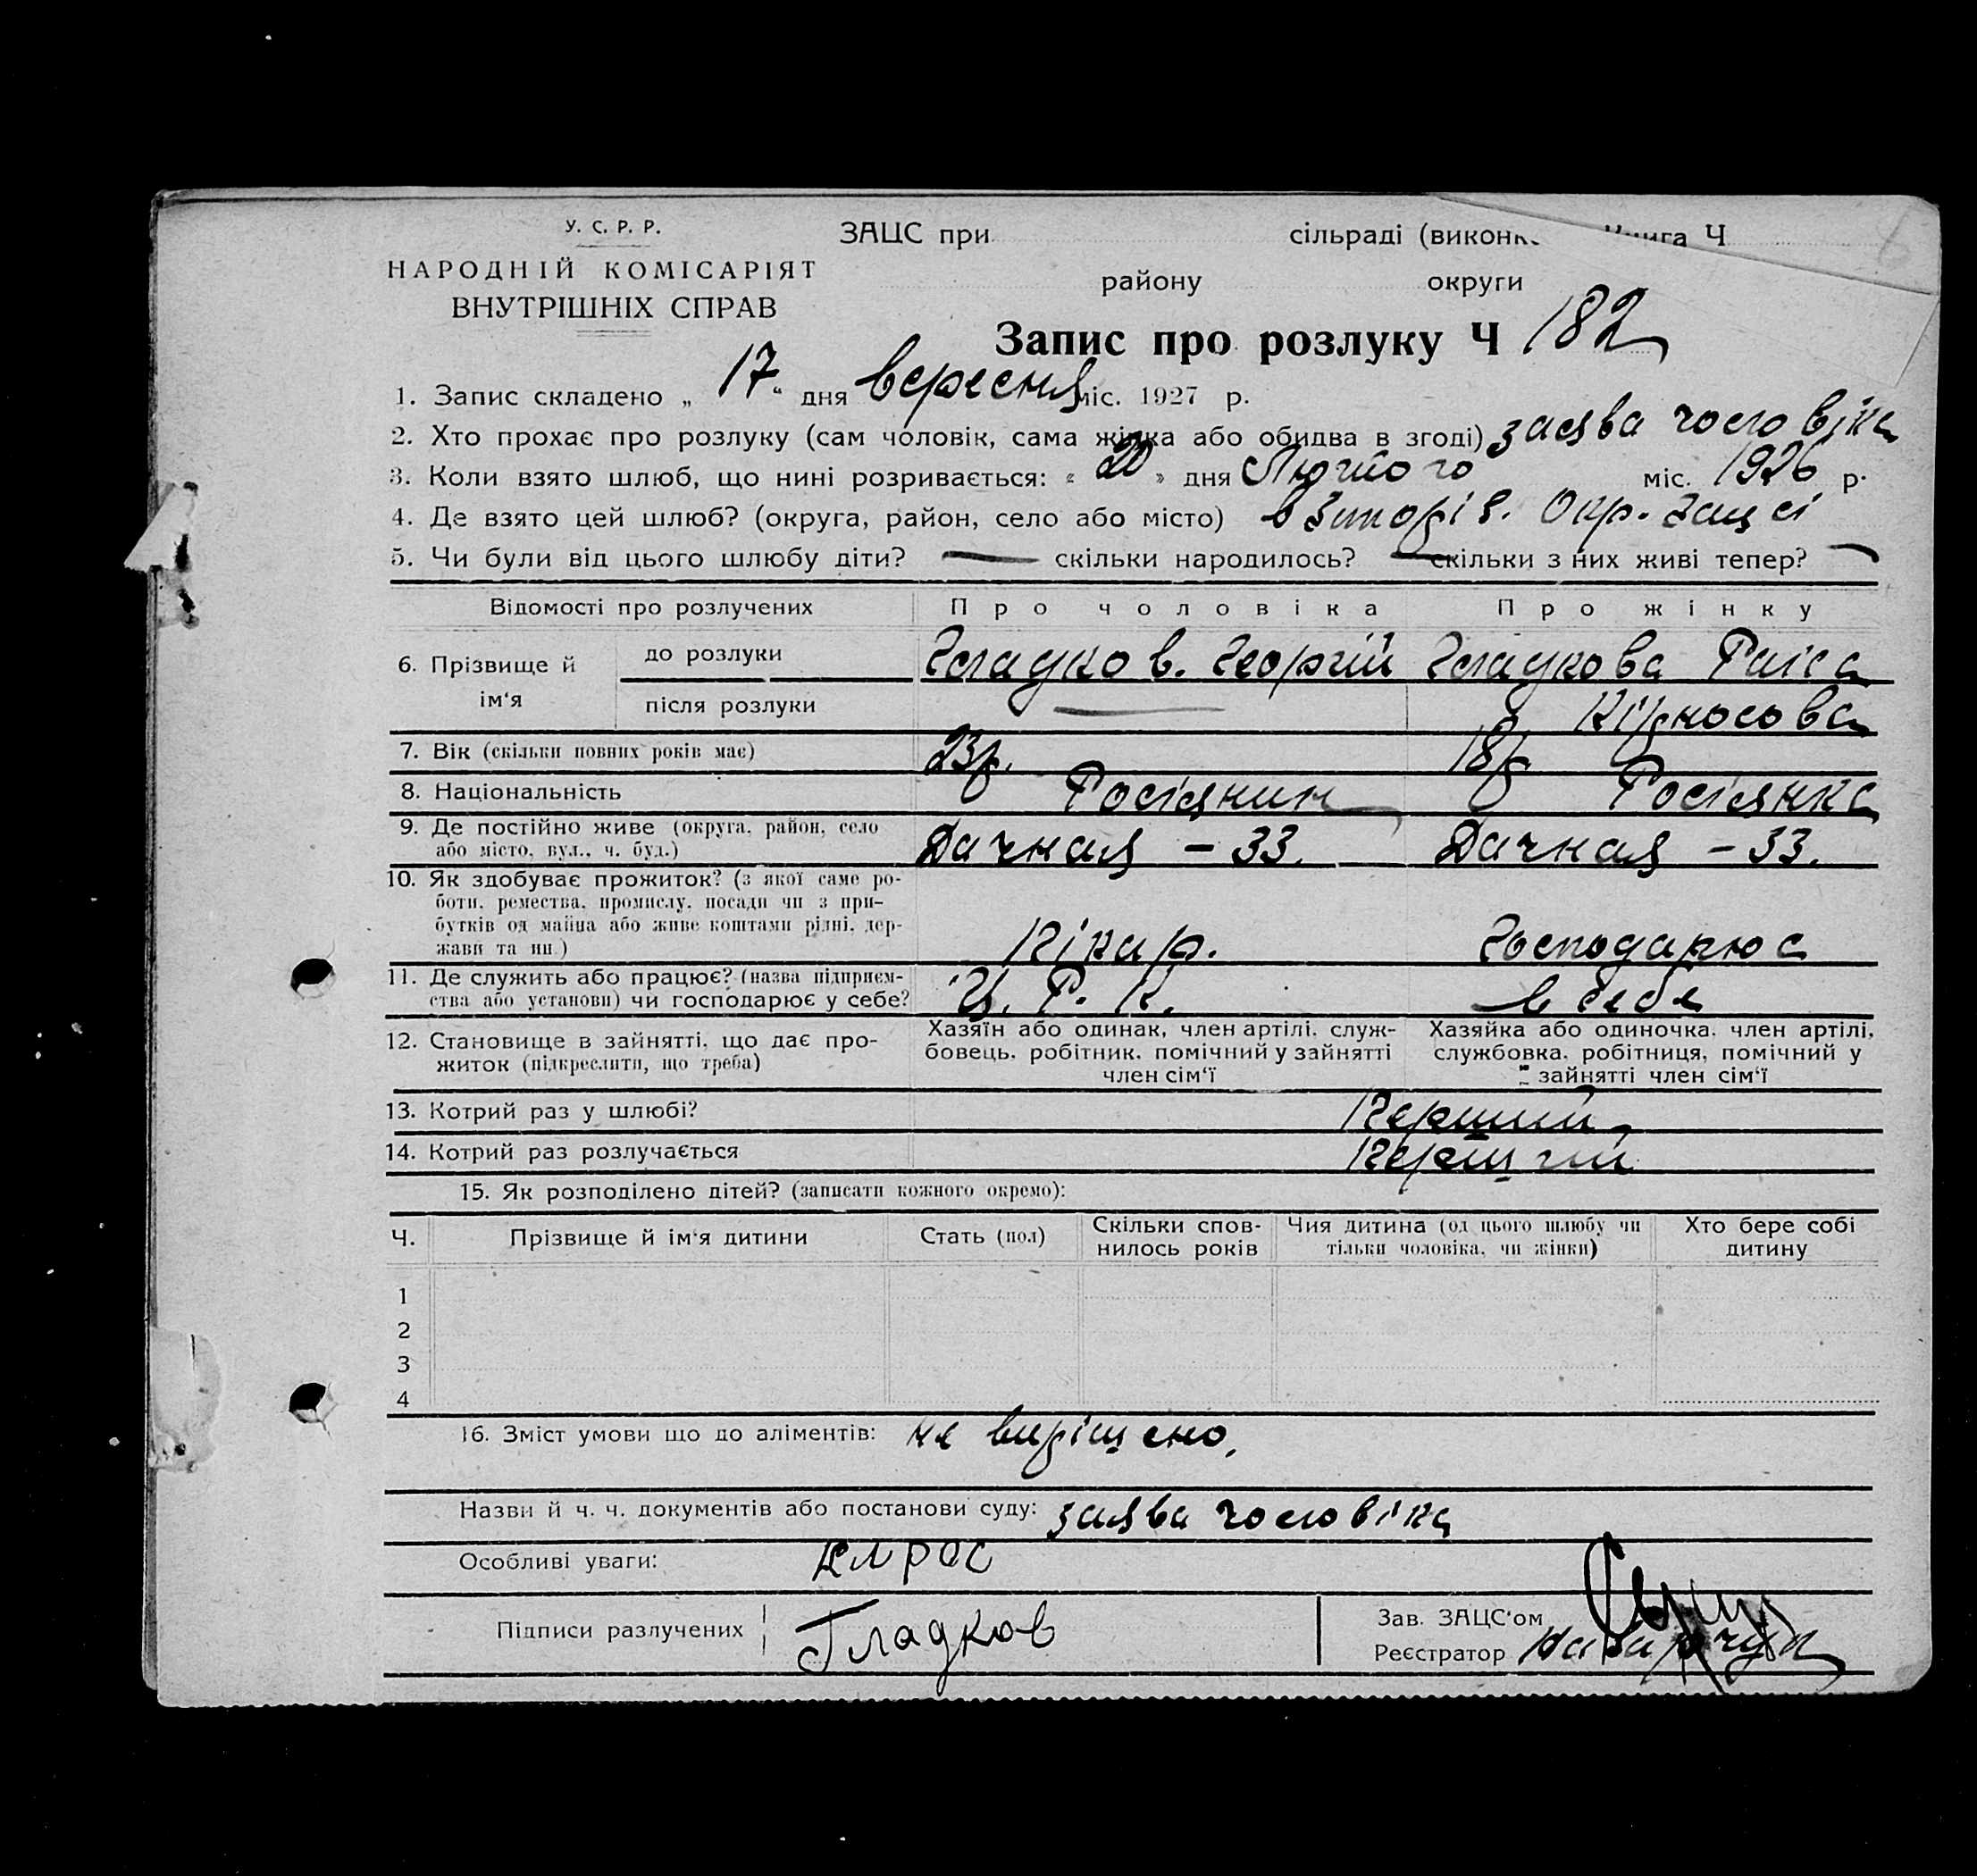 У. С. Р. Р.
НАРОДНІЙ КОМІСАРІЯТ
ВНУТРІШНІХ СПРАВ
ЗАЦС при сільраді (виконк Книга Ч
району округи
Запис про розлуку Ч 182
1. Запис складено „ 17 “ дня вересня міс. 1927 р.
2. Хто прохає про розлуку (сам чоловік, сама жінка або обидва в згоді) заява чоловіка
3. Коли взято шлюб, що нині розривається: « 20 » дня Лютого міс. 1926 р.
4. Де взято цей шлюб? (округа, район, село або місто) в Окр. Зацсі
5. Чи були від цього шлюбу діти? — скільки народилось? — скільки з них живі тепер? —
Відомості про розлучених Про чоловіка Про жінку
6. Прізвище й ім‘я до розлуки Гладков. Георгій Гладкова Раїса
після розлуки — Кірносова
7. Вік (скільки повних років має) 23р. 18р
8. Національність Росіянин Росіянка
9. Де постійно живе (округа, район, село або місто, вул., ч. буд.) Дачная - 33. Дачная - 33.
10. Як здобуває прожиток? (з якої саме роботи, ремества, промислу, посади чи з прибутків од майна або живе коштами рідні, держави та ин.) Пікар. Господарює
11. Де служить або працює? (назва підприємства або установи) чи господарює у себе? Ц. Р. К. в себе
12. Становище в зайнятті, що дає прожиток (підкреслити, що треба) Хазяїн або одинак, член артілі, службовець, робітник, помічний у зайнятті член сім‘ї Хазяйка або одиночка, член артілі, службовка, робітниця, помічний у зайнятті член сім‘ї
13. Котрий раз у шлюбі? Перший
14. Котрий раз розлучається Перший
15. Як розподілено дітей? (записати кожного окремо):
Ч. Прізвище й ім‘я дитини Стать (пол) Скільки сповнилось років Чия дитина (од цього шлюбу чи тільки чоловіка, чи жінки) Хто бере собі дитину
1
2
3
4
16. Зміст умови що до аліментів: не вирішено,
Назви й ч. ч. документів або постанови суду: заява чоловіка
Особливі уваги:
Підписи разлучених Гладков
Зав. ЗАЦС‘ом
Реєстратор